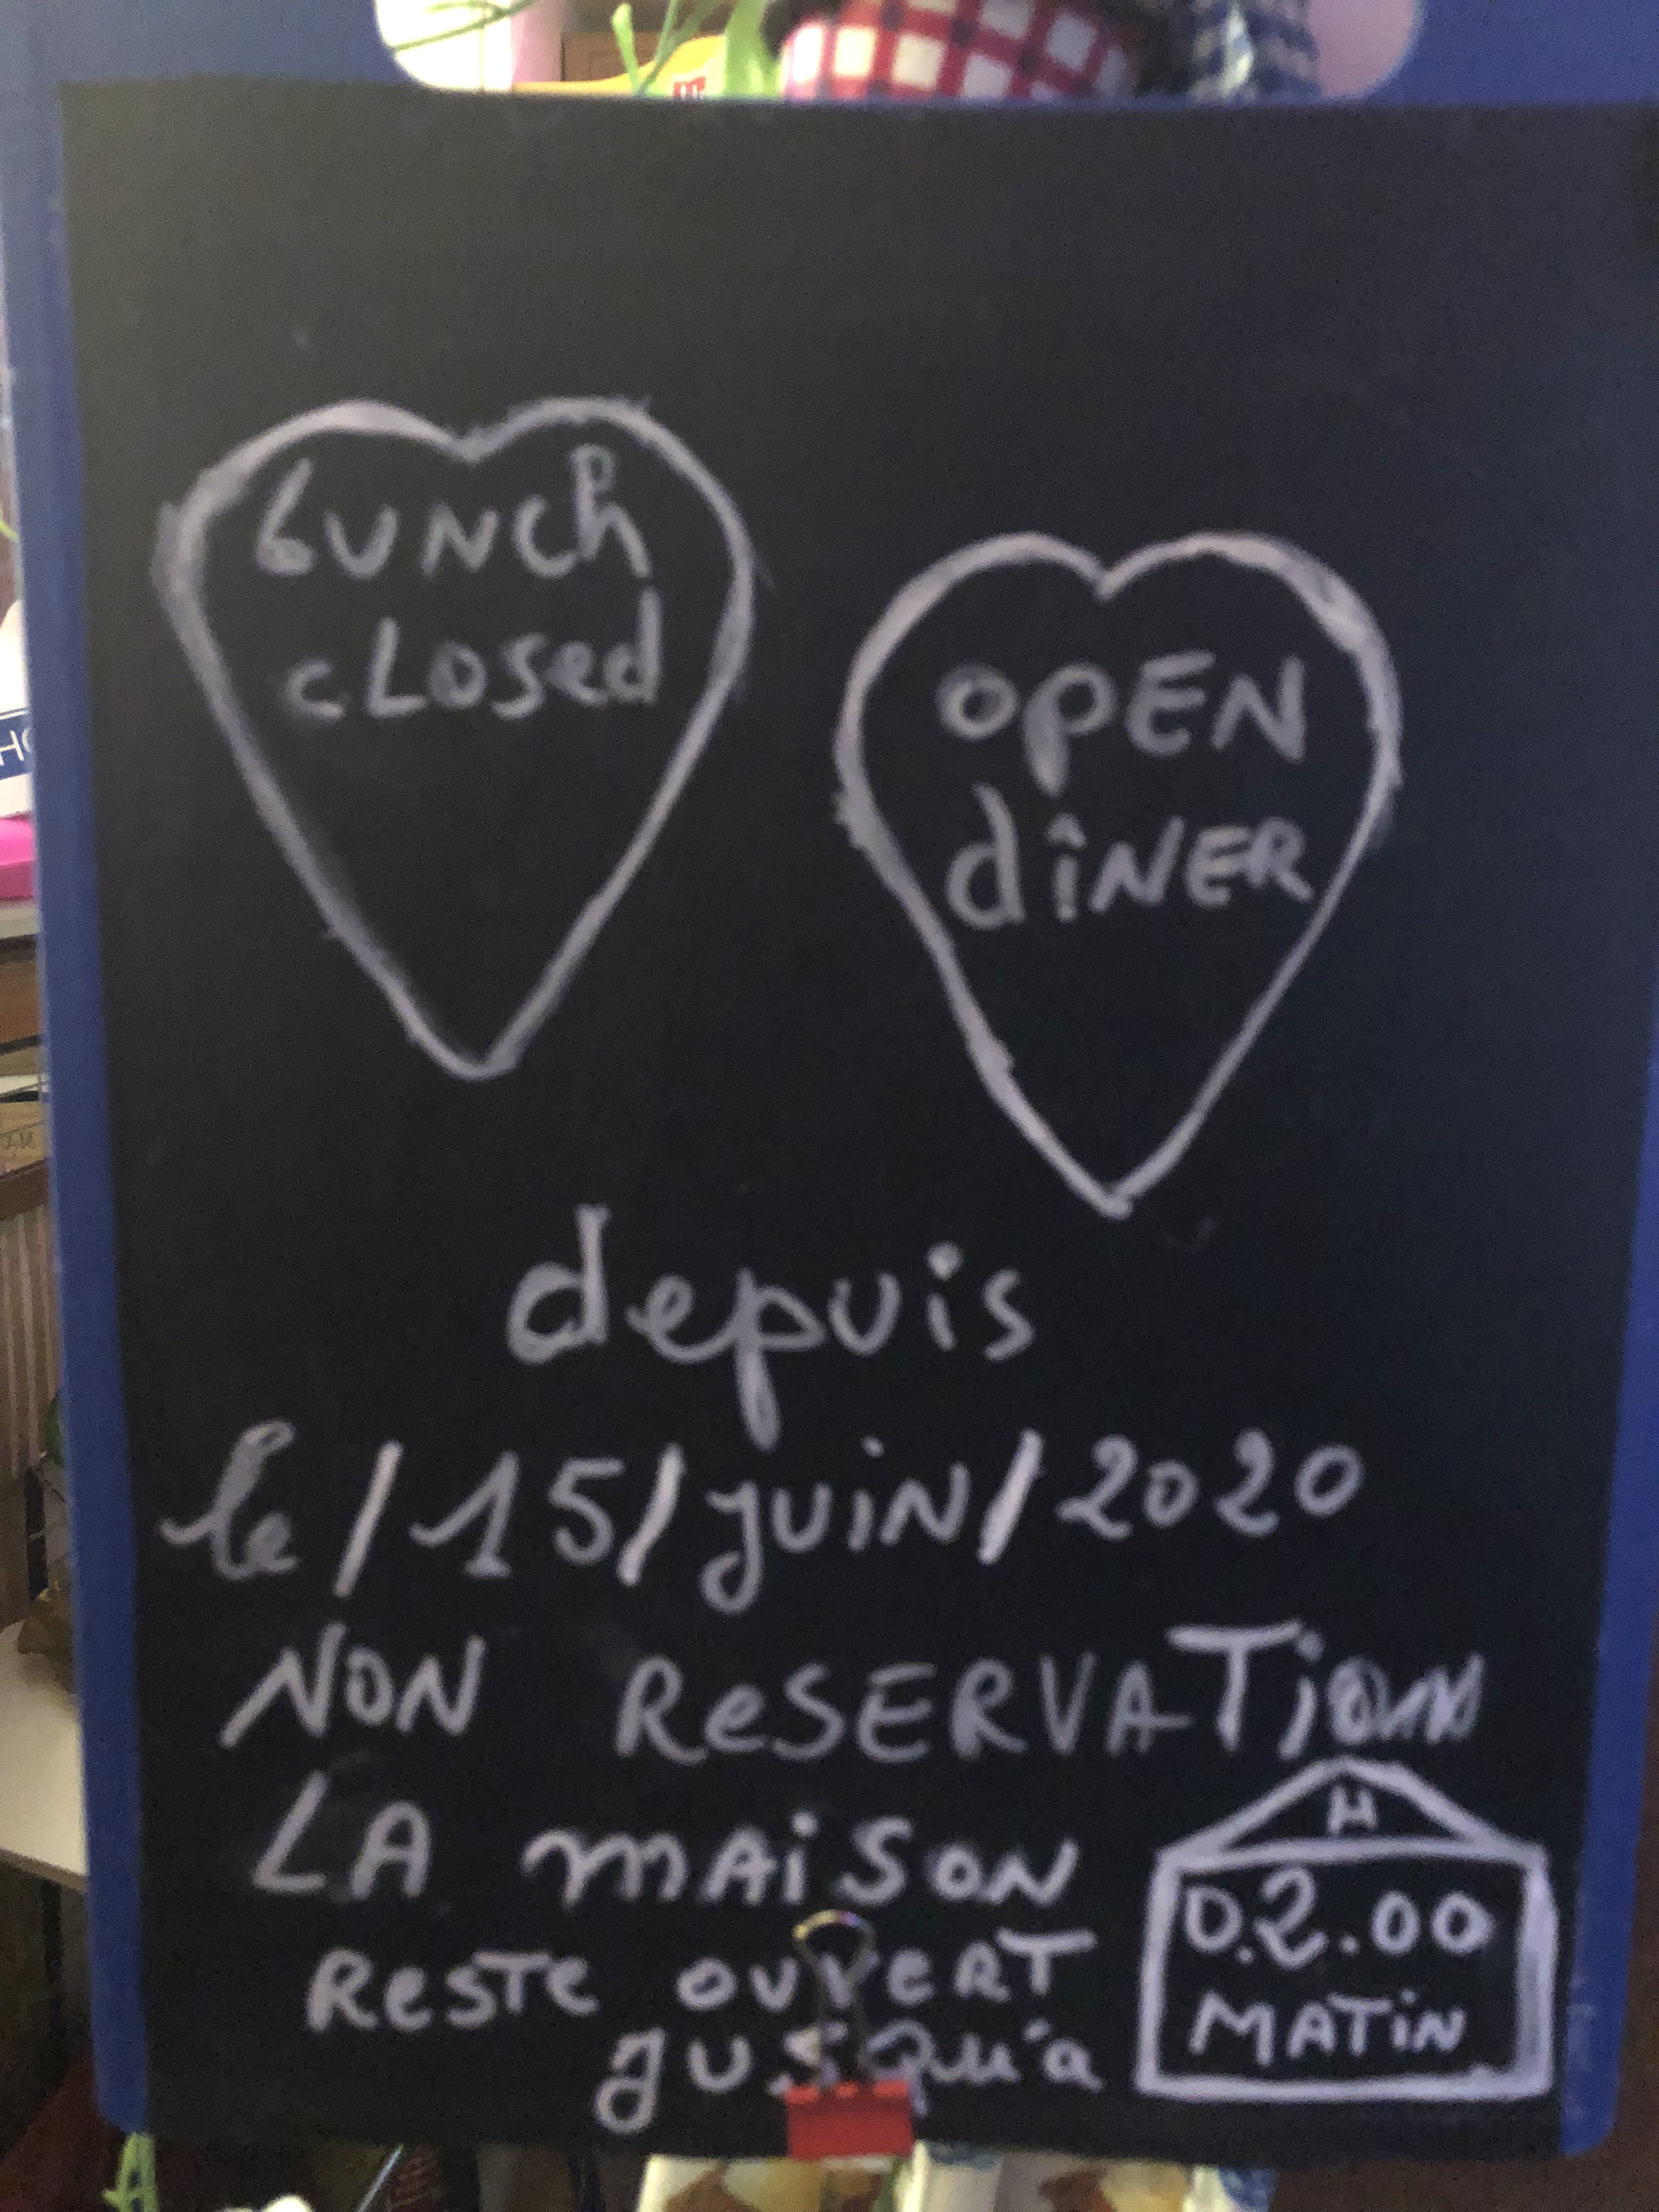 Lunch
cLosed
OPEN
dîNER
depuis
le/15/juiN/2020
NON ReSERVATION
LA mAiSON
ReSTe OUVeRT
jusQu'a
H
02.00
MATiN